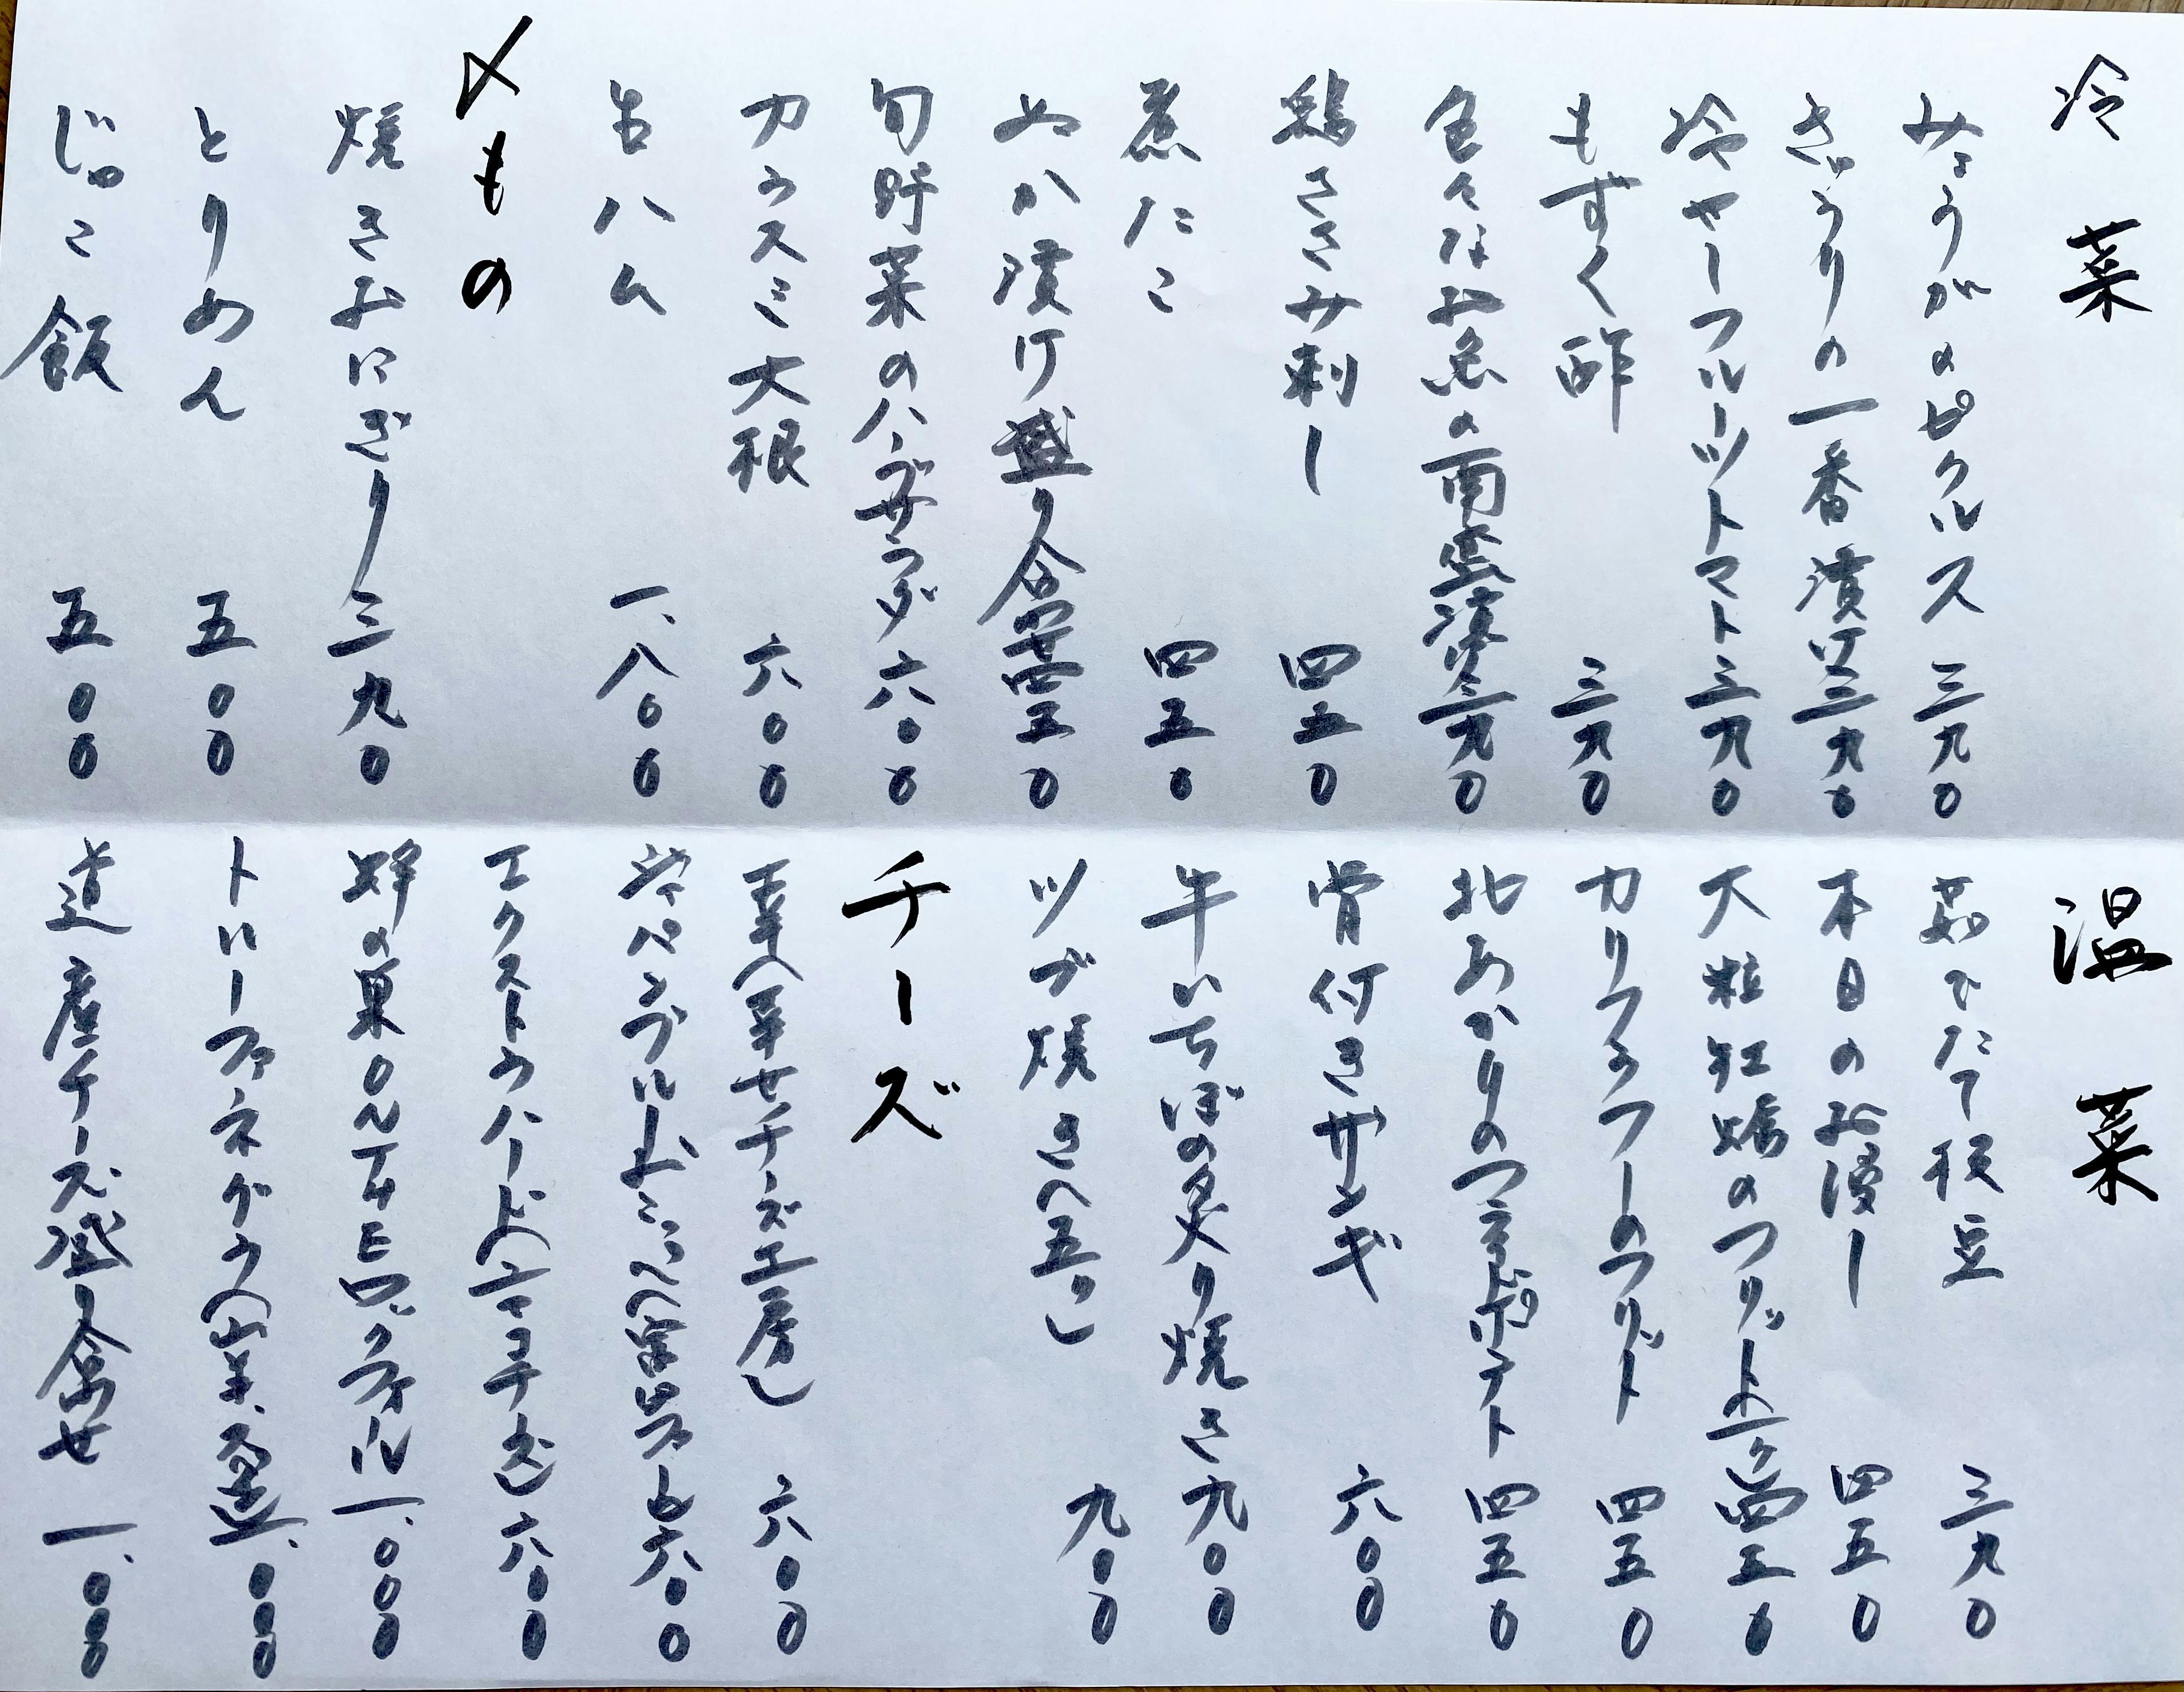 冷菜
みょうがのピクルス 三九〇
きゅうりの一番漬け 三九〇
冷やしフルーツトマト 三九〇
もずく酢 三九〇
色々なお魚の南蛮漬け 三九〇
鶏ささみ刺し 四五〇
煮たこ 四五〇
ぬか漬け盛り合わせ 四五〇
旬野菜のハーブサラダ 六〇〇
カラスミ大根 六〇〇
生ハム 一、八〇〇
〆もの
焼きおにぎり 三九〇
とりめん 五〇〇
じゃこ飯 五〇〇
温菜
茹でたて枝豆 三九〇
本日のお浸し 四五〇
大粒牡蛎のフリット 一ケ 四五〇
カリフラワーのフリット 四五〇
北あかりのフライドポテト 四五〇
骨付きザンギ 六〇〇
牛いちぼの炙り焼き 九〇〇
ツブ焼き(五ケ) 九〇〇
チーズ
幸(幸せチーズ工房) 六〇〇
ジャパンブルー 六〇〇
エクストラハード(ニセコチーズ) 六〇〇
蜂の巣ロルテHEロヴァール 一、〇〇〇
トリーファネグラ 一、〇〇〇
道産チーズ盛り合せ 一、〇〇〇